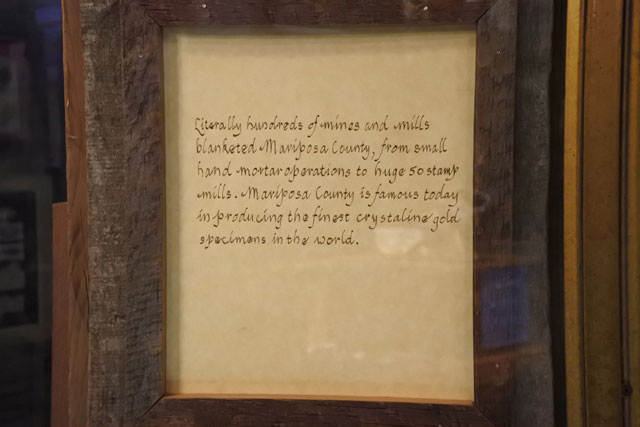 Literally hundreds of mines and mills
blanketed Mariposa County, from small
hand mortar operations to huge 50 stamp
mills. Mariposa County is famous today
in producing the finest crystaline gold
specimens in the world.